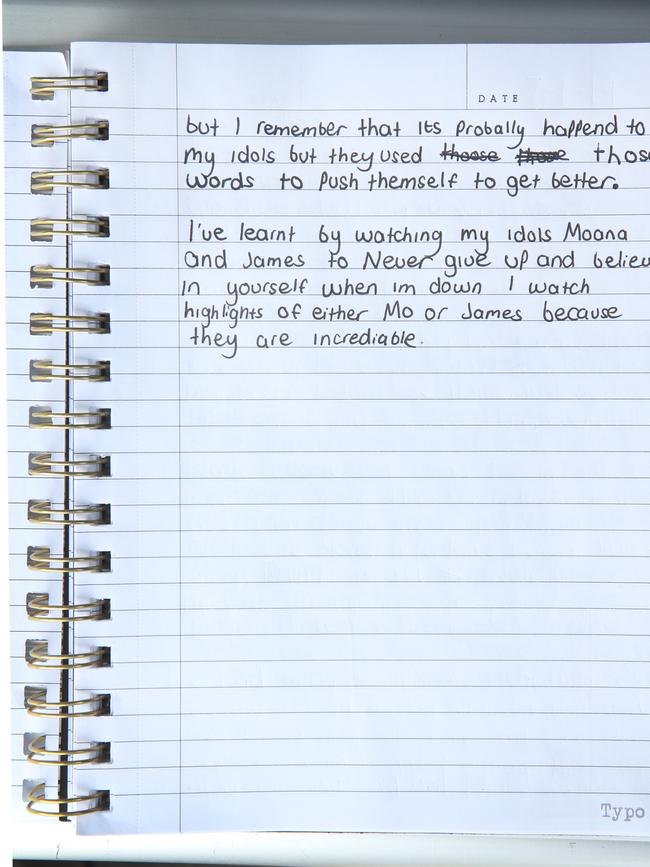 DATE
but I remember that its probally happend to
my idols but they used those
words to push themself to get better.
I've learnt by watching my idols Moana
and James to Never give up and believ
in yourself when im down I watch
highlights of either Mo or James because
they are incrediable.
Typo